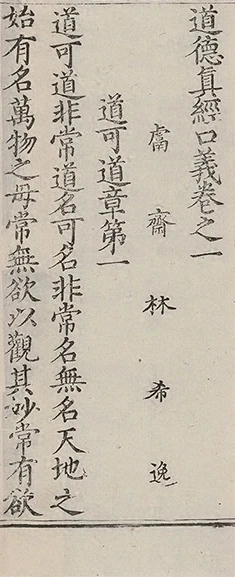 道德真經口義卷之一
鬳齋林希逸
道可道章第一
道可道非常道名可名非常名無名天地之
始有名萬物之母常無欲以觀其妙常有欲